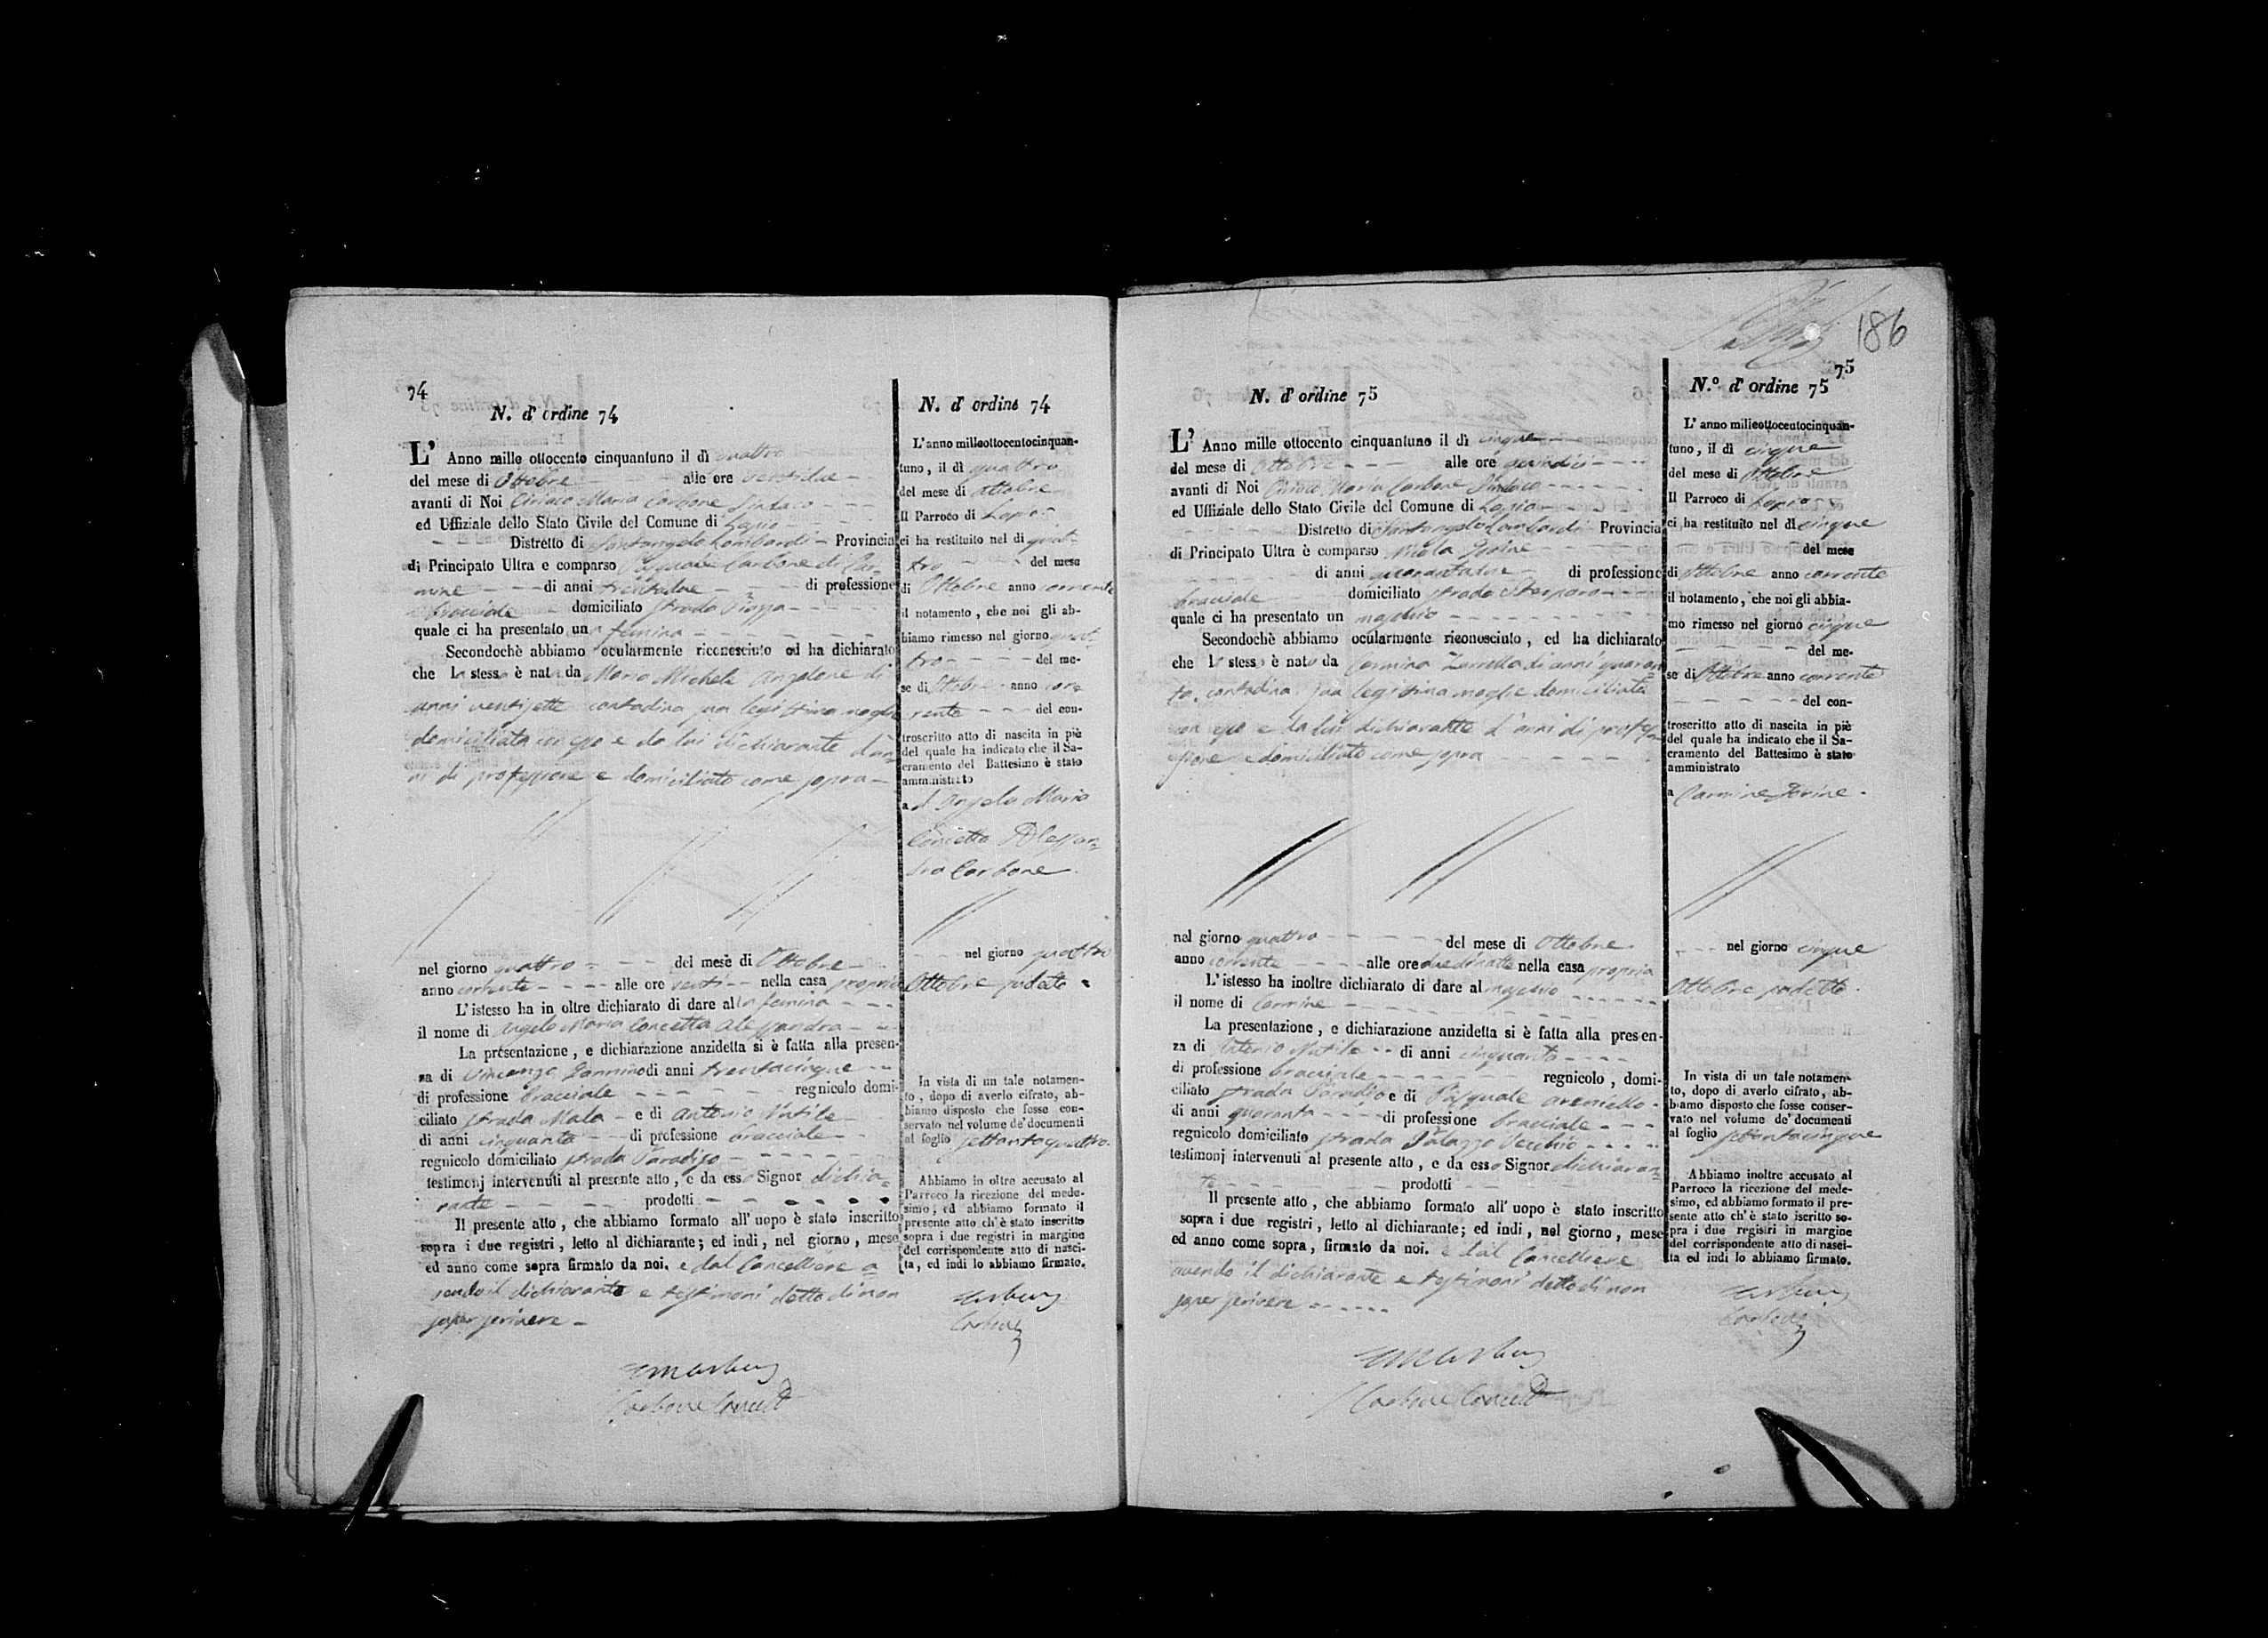 74
N. d' ordine 74
L' Anno mille ottocento cinquantuno il dì quattro
del mese di Ottobre alle ore ventidue
avanti di Noi Ciriaco Maria Carbone Sindaco
ed Uffiziale dello Stato Civile del Comune di Lapio
Distretto di Santangelo Lombardi Provincia
di Principato Ultra e comparso Pasquale Carbone di Car-
mine di anni trentadue di professione
bracciale domiciliato strada Piazza
quale ci ha presentato una femina
Secondochè abbiamo ocularmente riconosciuto ed ha dichiarato
che la stessa è nata da Maria Michela Angelone di
anni ventisette contadina sua legittima moglie
domiciliata con esso e da lui dichiarante d'an-
ni di professione e domiciliato come sopra
nel giorno quattro del mese di Ottobre
anno corrente alle ore venti nella casa propria
L'istesso ha in oltre dichiarato di dare alla femina
il nome di Angela Maria Concetta Alessandra
La presentazione, e dichiarazione anzidetta si è fatta alla presen-
za di Vincenzo di anni trentacinque
di professione bracciale regnicolo domi-
ciliato strada Mala e di Antonio Natile
di anni cinquanta di professione bracciale
regnicolo domiciliato strada Paradiso
testimonj intervenuti al presente atto, e da esso Signor dichia-
rante prodotti
Il presente atto, che abbiamo formato all'uopo è stato inscritto
sopra i due registri, letto al dichiarante; ed indi, nel giorno, mese
ed anno come sopra firmato da noi. e dal Cancelliere a
vendo il dichiarante e testimoni detto di non
saper scrivere
Carbone Cancell
N. d' ordine 74
L'anno milleottocentocinquan-
tuno, il dì quattro
del mese di Ottobre
Il Parroco di Lapio
ci ha restituito nel dì quat-
tro del mese
di Ottobre anno corrente
il notamento, che noi gli ab-
biamo rimesso nel giorno quat-
tro del me-
se di Ottobre anno cor-
rente del con-
troscritto atto di nascita in piè
del quale ha indicato che il Sa-
cramento del Battesimo è stato
amministrato
a d Angela Maria
Concetta Alessan-
dra Carbone
nel giorno quattro
Ottobre sudetto
In vista di un tale notamen-
to, dopo di averlo cifrato, ab-
biamo disposto che fosse con-
servato nel volume de' documenti
al foglio settantaquattro
Abbiamo in oltre accusato al
Parroco la ricezione del mede-
simo, ed abbiamo formato il
presente atto ch'è stato inscritto
sopra i due registri in margine
del corrispondente atto di nasci-
ta, ed indi lo abbiamo firmato.
186
75
N. d' ordine 75
L' Anno mille ottocento cinquantuno il dì cinque
del mese di Ottobre alle ore quindici
avanti di Noi Ciriaco Maria Carbone Sindaco
ed Uffiziale dello Stato Civile del Comune di Lapio
Distretto di Santangelo Lombardi Provincia
di Principato Ultra è comparso Nicola
di anni quarantadue di professione
bracciale domiciliato strada
quale ci ha presentato un maschio
Secondochè abbiamo ocularmente riconosciuto, ed ha dichiarato
che lo stesso è nato da Carmina Zarrella di anni quaran
ta, contadina sua legitima moglie domiciliata
con esso e da lui dichiarante d'anni di profes-
sione e domiciliato come sopra
nel giorno quattro del mese di Ottobre
anno corrente alle ore due di notte nella casa propria
L'istesso ha inoltre dichiarato di dare al maschio
il nome di Carmine
La presentazione, e dichiarazione anzidetta si è fatta alla presen-
za di Antonio Natile di anni cinquanta
di professione bracciale regnicolo, domi-
ciliato strada Paradiso e di Pasquale
di anni quaranta di professione bracciale
regnicolo domiciliato strada Palazzo Vecchio
testimonj intervenuti al presente atto, e da esso Signor dichiaran-
te prodotti
Il presente atto, che abbiamo formato all'uopo è stato inscritto
sopra i due registri, letto al dichiarante; ed indi, nel giorno, mese
ed anno come sopra, firmato da noi. e dal Cancelliere
avendo il dichiarante e testimoni detto di non
saper scrivere
Carbone Cancell
N.° d' ordine 75
L' anno milleottocentocinquan-
tuno, il dì cinque
del mese di Ottobre
Il Parroco di Lapio
ci ha restituito nel dì cinque
del mese
di Ottobre anno corrente
il notamento, che noi gli abbia-
mo rimesso nel giorno cinque
del me-
se di Ottobre anno corrente
del con-
troscritto atto di nascita in piè
del quale ha indicato che il Sa-
cramento del Battesimo è stato
amministrato
a Carmine
nel giorno cinque
Ottobre sudetto
In vista di un tale notamen-
to, dopo di averlo cifrato, ab-
biamo disposto che fosse conser-
vato nel volume de' documenti
al foglio settantacinque
Abbiamo inoltre accusato al
Parroco la ricezione del mede-
simo, ed abbiamo formato il pre-
sente atto ch'è stato iscritto so-
pra i due registri in margine
del corrispondente atto di nasci-
ta ed indi lo abbiamo firmato.